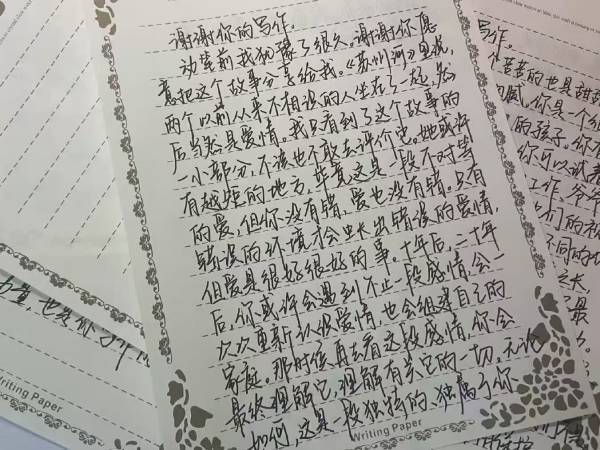 谢谢你的写作
动笔前我犹豫了很久。谢谢你愿
意把这个故事分享给我。《苏州河》里说，
两个以前从来不相识的人坐在了一起，然
后当然是爱情。我只看到了这个故事的
一小部分，不该也不敢去评价它。她或许
有越矩的地方，毕竟这是一段不对等
的爱，但你没有错，爱也没有错。只有
错误的环境才会生长出错误的爱情，
但爱是很好很好的事。十年后，二十年
后，你或许会遇到不止一段感情，会一
次次重新认识爱情，也会组建自己的
家庭。那时候再去看这段感情，你会
最终理解它，理解有关它的一切。无论
如何，这是一段独特的、独属于你
Writing Paper
写作。
你是一个
的孩子。你
你可以试着
工作。爷爷
们的
不同的
Writing Paper